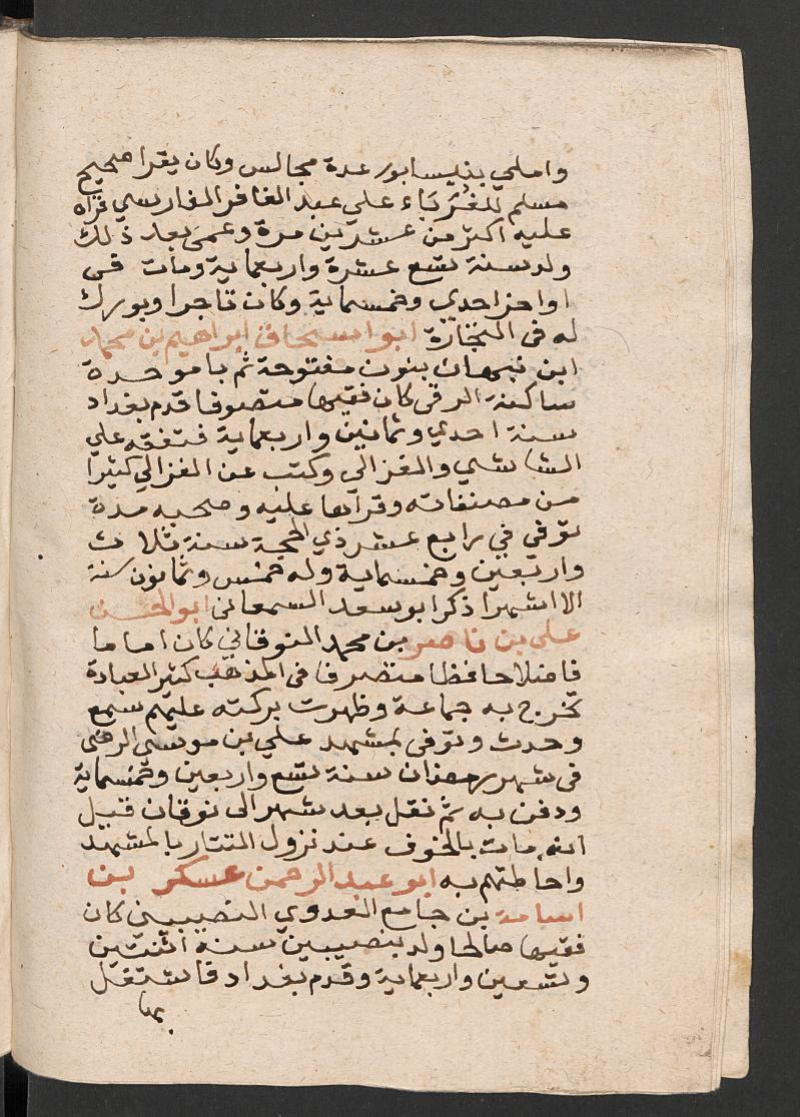 واملي بنيسابور عدة مجالس وكان يقرا صحيح
مسلم للغُرَبَاء علي عبد الغافر الفارسي قراه
عليه اكثر من عشرين مرة وعمى بعد ذلك
ولد سنة تسع عشرة واربعماية ومات فى
اواخر احدي وخمسماية وكان تاجرا وبورك
له فى التجارة ابو اسحاق ابراهيم بن محمد
ابن نبهان بنون مفتوحة ثم با موحدة
ساكنة الرقى كان فقيها متصوفا قدم بغداد
سنة احدي وثمانين واربعماية فتفقه علي
الشاشي والغزالى وكتب عن الغزالي كثيرا
من مصنفاته وقراها عليه وصحبه مدة
توفي في رابع عشر ذي الحجة سنة ثلاث
واربعين وخمسماية وله خمس وثمانون سنة
الا اشهرا ذكرا بوسعد السمعانى ابو الحسن
على بن ناصر بن محمد النوقاني كان اماما
فاضلا حافظا متصرفا فى المذهب كثير العبادة
تخرج به جماعة وظهرت بركته عليهم سمع
وحدث وتوفى بمشهد علي بن موسي الرضى
فى شهر رمضان سنة تسع واربعين وخمسماية
ودفن به ثم نقل بعد شهر الى نوقان قيل
انه مات بالخوف عند نزول التتار بالمشهد
واحاطتهم به ابو عبد الرحمن عسكر بن
اسامة بن جامع العدوي النصيبيني كان
فقيها صالحا ولد بنصيبين سنه اثنتين
وتسعين واربعماية وقدم بغداد فاشتغل
بها